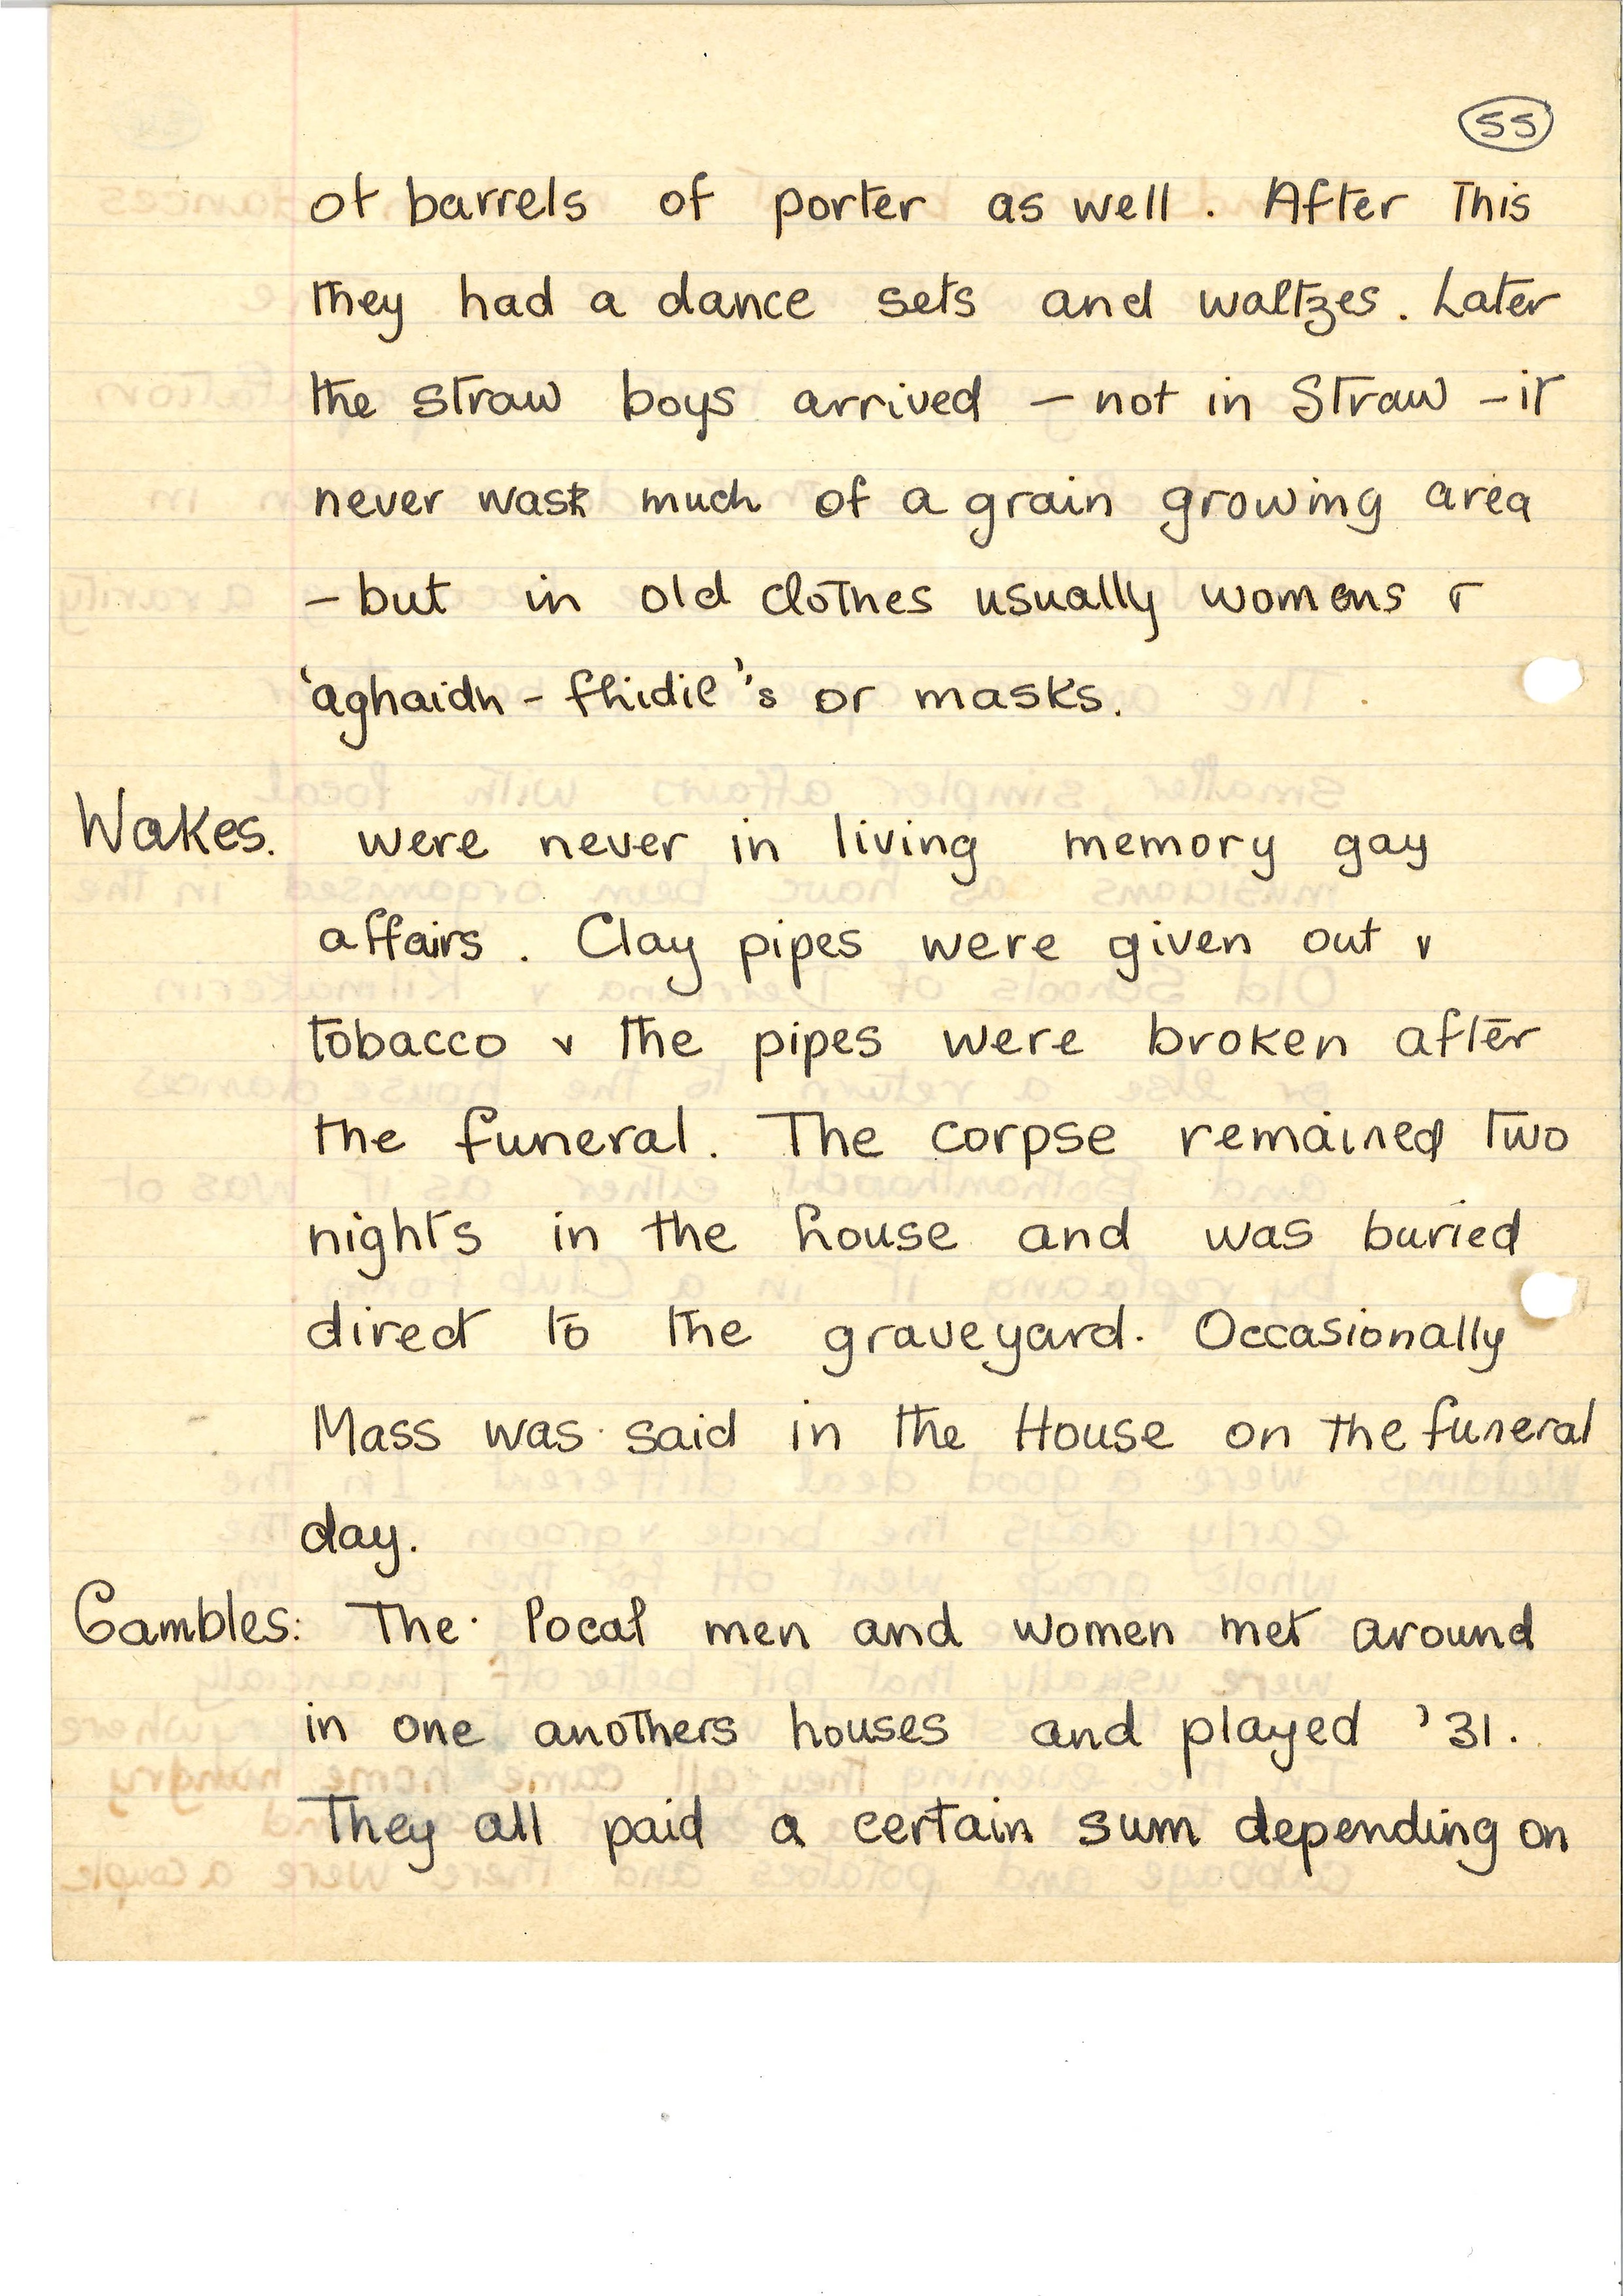 55
of barrels of porter as well. After This
They had a dance sets and waltzes. Later
the straw boys arrived – not in Straw – it
never was much of a grain growing area
– but in old clothes usually womens &
'aghaidh - fhidil's or masks.
Wakes. were never in living memory gay
affairs. Clay pipes were given out &
tobacco & the pipes were broken after
the funeral. The corpse remained two
nights in the house and was buried
direct to the graveyard. Occasionally
Mass was said in the House on the funeral
day.
Gambles: The local men and women met around
in one anothers houses and played '31.
They all paid a certain sum depending on